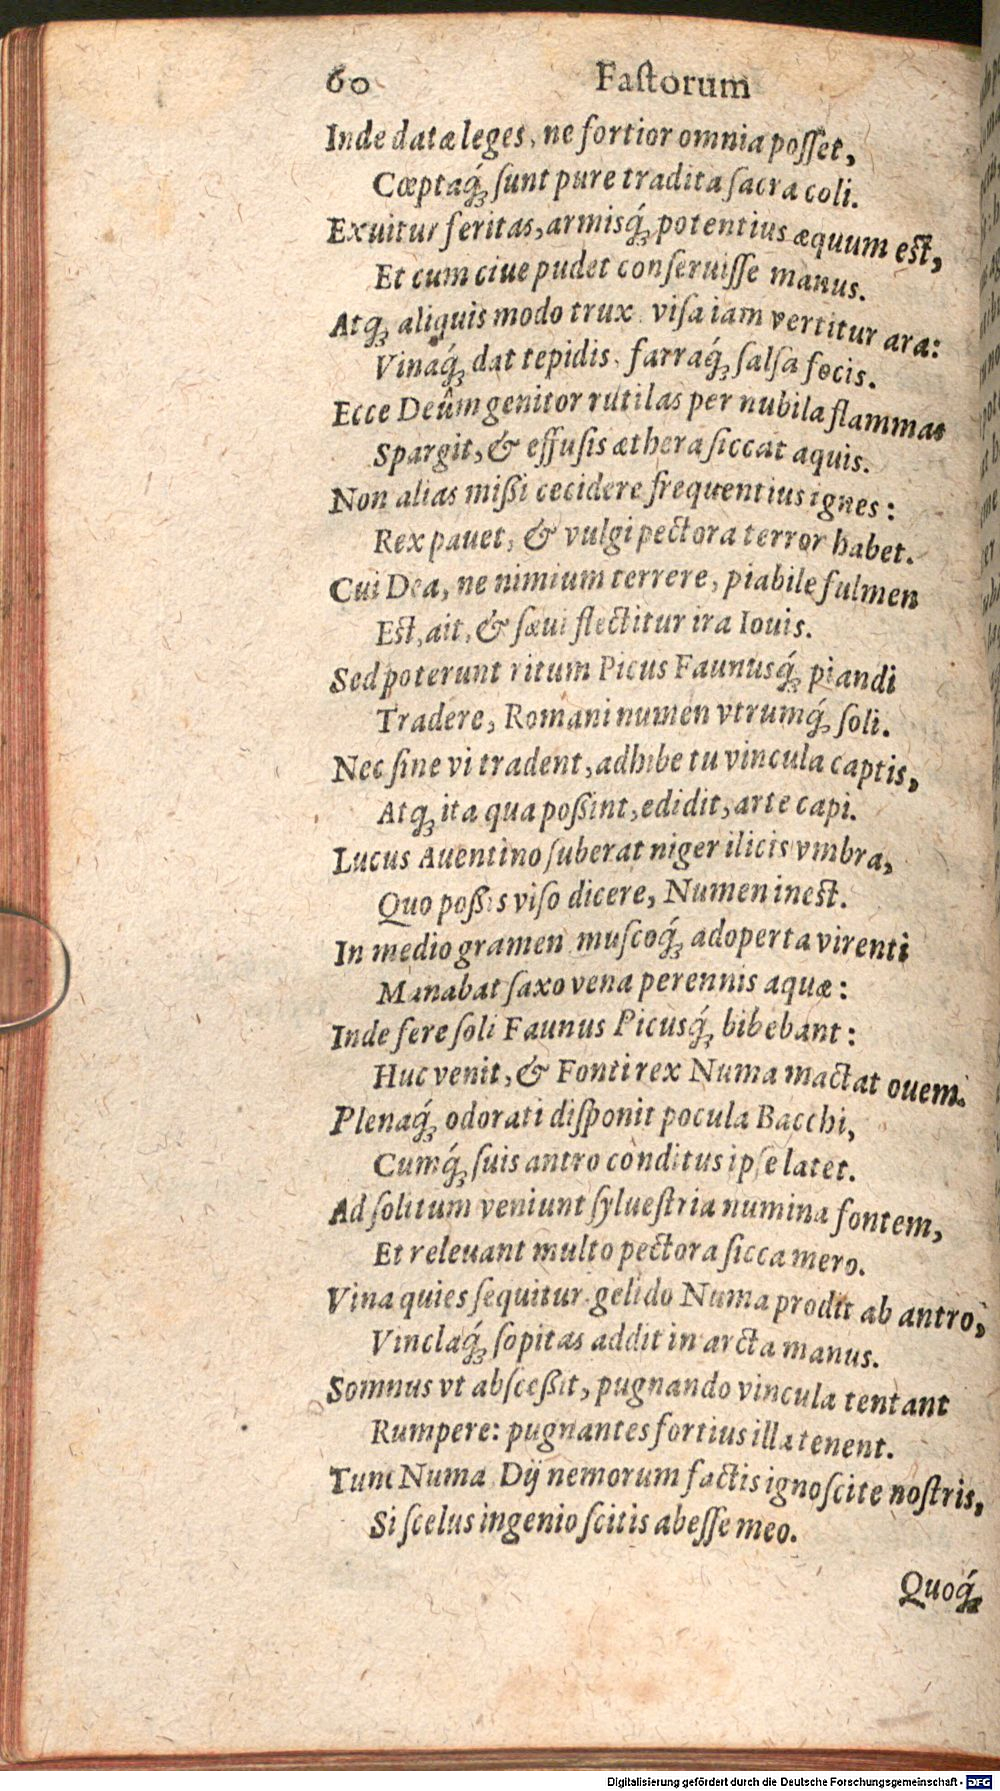 60 Faſtorum
Inde datæ leges, ne fortior omnia poſſet,
Cœptaq́; ſunt pure tradita ſacra coli.
Exuitur feritas, armisq́; potentius æquum eſt,
Et cum ciue pudet conſeruiſſe manus.
Atq; aliquis modo trux viſa iam vertitur ara:
Vinaq́; dat tepidis, farraq́; ſalſa focis.
Ecce Deûm genitor rutilas per nubila flammas
Spargit, & effuſis æthera ſiccat aquis.
Non alias mißi cecidere frequentius ignes:
Rex pauet, & vulgi pectora terror habet.
Cui Dea, ne nimium terrere, piabile fulmen
Eſt, ait, & ſæui flectitur ira Iouis.
Sed poterunt ritum Picus Faunusq́; piandi
Tradere, Romani numen vtrumq́; ſoli.
Nec ſine vi tradent, adhibe tu vincula captis,
Atq; ita qua poßint, edidit, arte capi.
Lucus Auentino ſuberat niger ilicis vmbra,
Quo poßis viſo dicere, Numen ineſt.
In medio gramen muſcoq́; adoperta virenti
Manabat ſaxo vena perennis aquæ:
Inde fere ſoli Faunus Picusq́; bibebant:
Huc venit, & Fonti rex Numa mactat ouem.
Plenaq́; odorati diſponit pocula Bacchi,
Cumq́; ſuis antro conditus ipſe latet.
Ad ſolitum veniunt ſylueſtria numina fontem,
Et releuant multo pectora ſicca mero.
Vina quies ſequitur gelido Numa prodit ab antro,
Vinclaq́; ſopitas addit in arcta manus.
Somnus vt abſceßit, pugnando vincula tentant
Rumpere: pugnantes fortius illa tenent.
Tunc Numa, Dij nemorum factis ignoſcite noſtris,
Si ſcelus ingenio ſcitis abeſſe meo.
Quoq́;
Digitalisierung gefördert durch die Deutsche Forschungsgemeinschaft - DFG